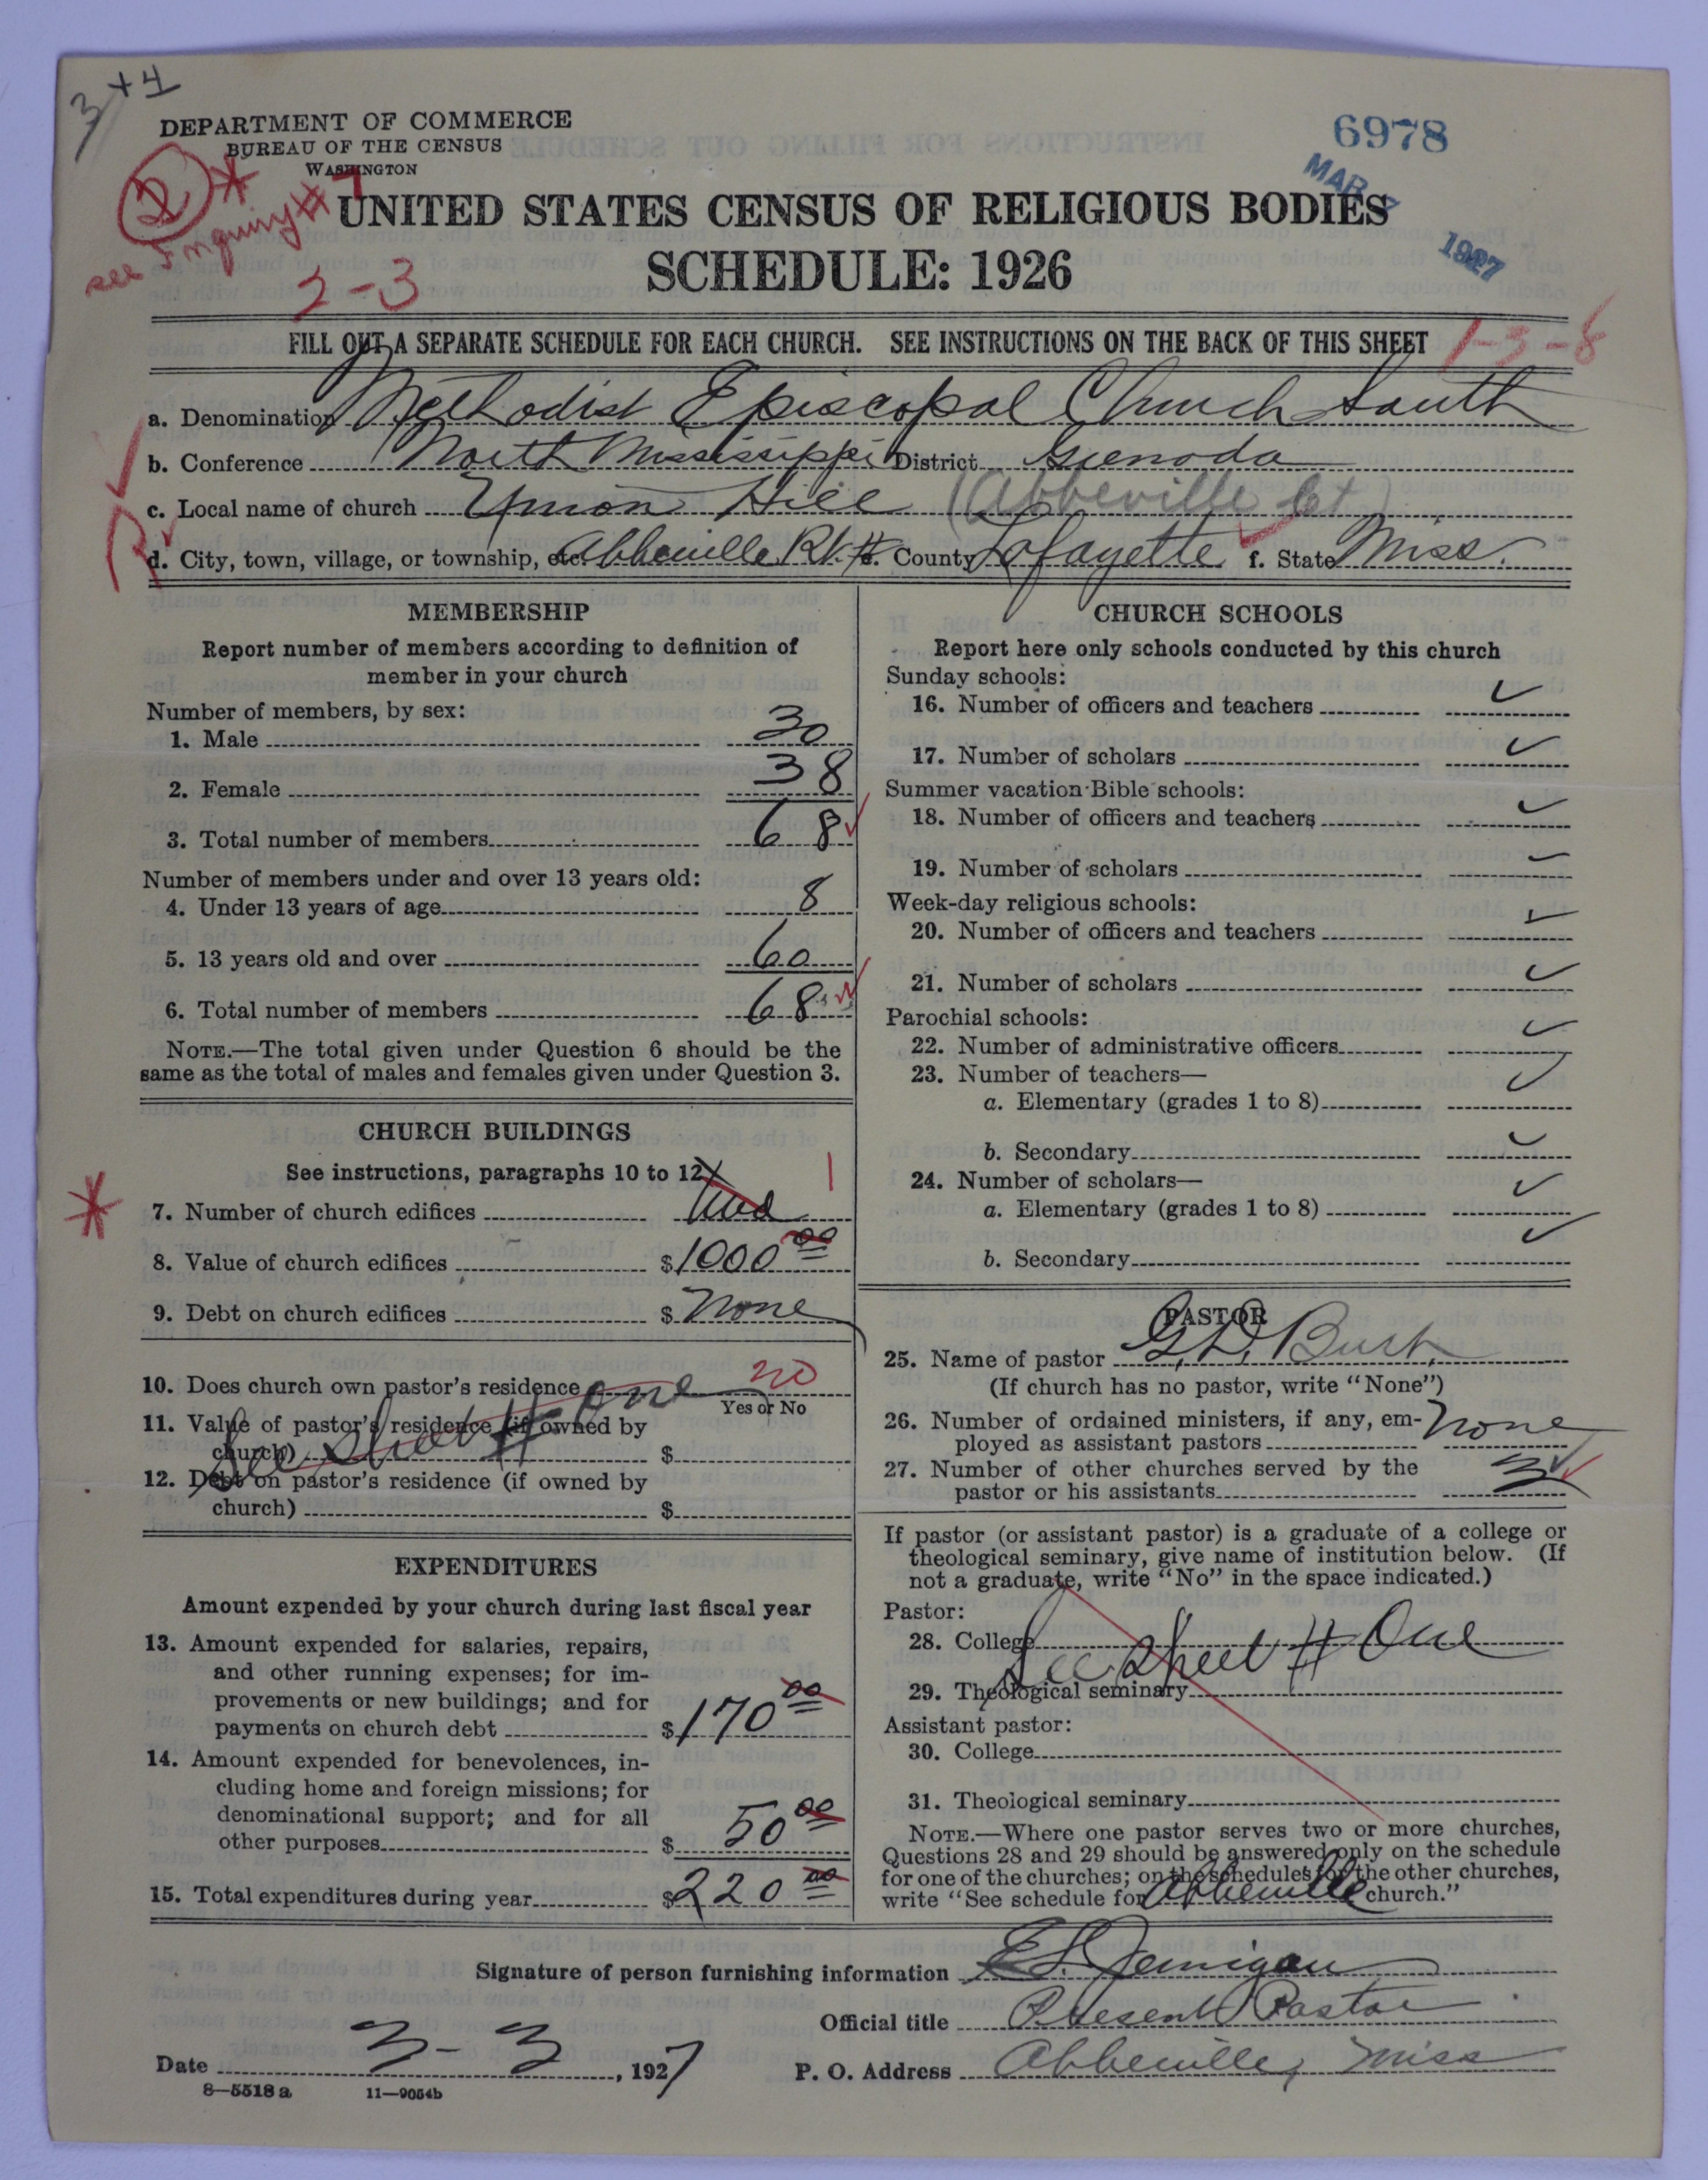 3 + 4
DEPARTMENT OF COMMERCE
BUREAU OF THE CENSUS
WASHINGTON
6978
MAR 1927
see Inquiry # 7
2-3
UNITED STATES CENSUS OF RELIGIOUS BODIES
SCHEDULE: 1926
FILL OUT A SEPARATE SCHEDULE FOR EACH CHURCH. SEE INSTRUCTIONS ON THE BACK OF THIS SHEET
1-3-8
a. Denomination Methodist Episcopal Church South
b. Conference North Mississippi District Grenada
c. Local name of church Union Hill (Abbeville Ct)
d. City, town, village, or township, etc. Abbeville Rt. # e. County Lafayette f. State Miss.
MEMBERSHIP
Report number of members according to definition of
member in your church
Number of members, by sex:
1. Male 30
2. Female 38
3. Total number of members 68
Number of members under and over 13 years old:
4. Under 13 years of age 8
5. 13 years old and over 60
6. Total number of members 68
NOTE.—The total given under Question 6 should be the
same as the total of males and females given under Question 3.
CHURCH BUILDINGS
See instructions, paragraphs 10 to 12
7. Number of church edifices 1
8. Value of church edifices $1000 00
9. Debt on church edifices $ None
10. Does church own pastor's residence no
Yes or No
See sheet # one
11. Value of pastor's residence (if owned by
church) $
12. Debt on pastor's residence (if owned by
church) $
EXPENDITURES
Amount expended by your church during last fiscal year
13. Amount expended for salaries, repairs,
and other running expenses; for im-
provements or new buildings; and for
payments on church debt $170 00
14. Amount expended for benevolences, in-
cluding home and foreign missions; for
denominational support; and for all
other purposes $ 50 00
15. Total expenditures during year $220 00
CHURCH SCHOOLS
Report here only schools conducted by this church
Sunday schools:
16. Number of officers and teachers
17. Number of scholars
Summer vacation Bible schools:
18. Number of officers and teachers
19. Number of scholars
Week-day religious schools:
20. Number of officers and teachers
21. Number of scholars
Parochial schools:
22. Number of administrative officers
23. Number of teachers—
a. Elementary (grades 1 to 8)
b. Secondary
24. Number of scholars—
a. Elementary (grades 1 to 8)
b. Secondary
PASTOR
25. Name of pastor G. D. Burt
(If church has no pastor, write "None")
26. Number of ordained ministers, if any, em-
ployed as assistant pastors None
27. Number of other churches served by the
pastor or his assistants 3
If pastor (or assistant pastor) is a graduate of a college or
theological seminary, give name of institution below. (If
not a graduate, write "No" in the space indicated.)
Pastor:
28. College
See Sheet # One
29. Theological seminary
Assistant pastor:
30. College
31. Theological seminary
NOTE.—Where one pastor serves two or more churches,
Questions 28 and 29 should be answered only on the schedule
for one of the churches; on the schedules for the other churches,
write "See schedule for Abbeville church."
Signature of person furnishing information E L Jernigan
Official title Present Pastor
Date 3-3, 1927 P. O. Address Abbeville, Miss
8—5518 a 11—9054b